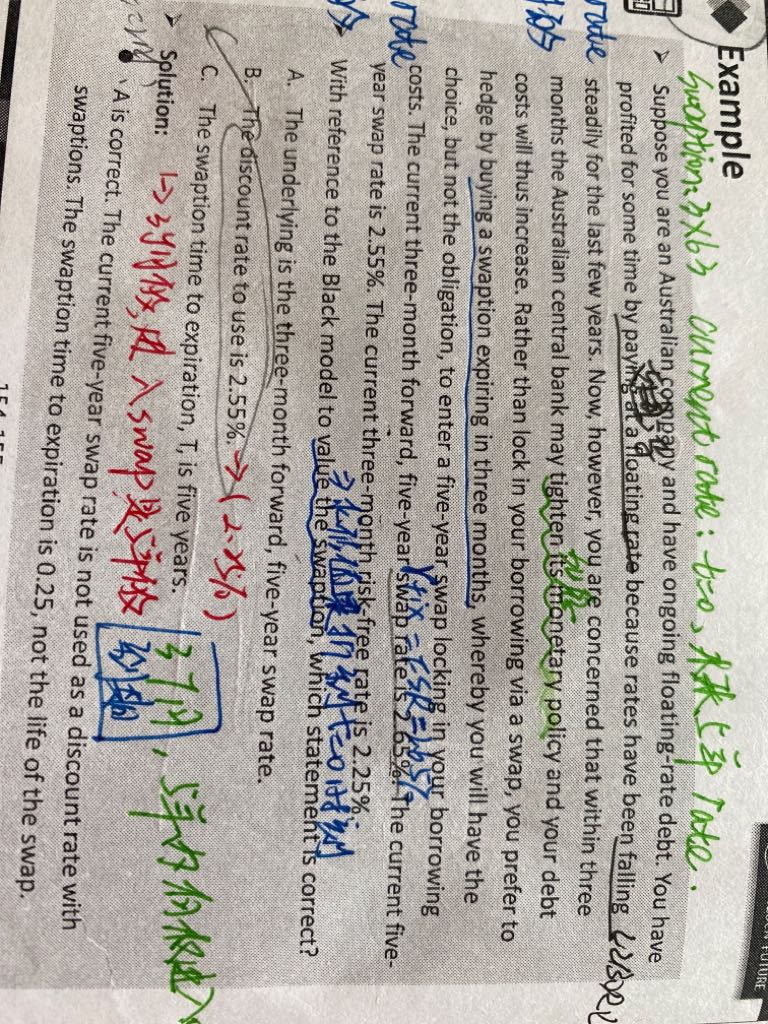 Example
swaption: 3×63 current rate: t=0, 未来5年 rate.
Suppose you are an Australian company and have ongoing floating-rate debt. You have
profited for some time by paying at a floating rate because rates have been falling
rate steadily for the last few years. Now, however, you are concerned that within three
months the Australian central bank may tighten its monetary policy and your debt
costs will thus increase. Rather than lock in your borrowing via a swap, you prefer to
hedge by buying a swaption expiring in three months, whereby you will have the
choice, but not the obligation, to enter a five-year swap locking in your borrowing
fix = FSR = 2.65%
rate costs. The current three-month forward, five-year swap rate is 2.65%. The current five-
year swap rate is 2.55%. The current three-month risk-free rate is 2.25%.
With reference to the Black model to value the swaption, which statement is correct?
A. The underlying is the three-month forward, five-year swap rate.
B. The discount rate to use is 2.55%. → (2.25%)
C. The swaption time to expiration, T, is five years.
Solution:
A is correct. The current five-year swap rate is not used as a discount rate with
swaptions. The swaption time to expiration is 0.25, not the life of the swap.